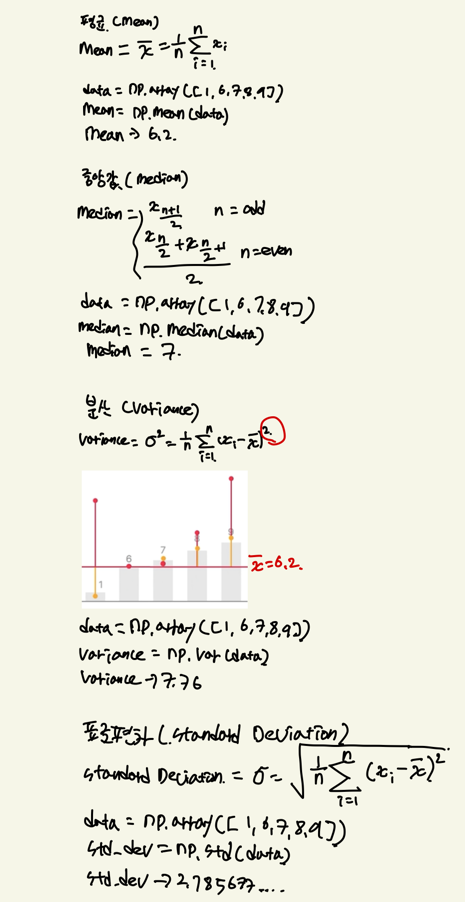 평균 (Mean)
Mean = x̄ = 1/n Σ_{i=1}^{n} x_i
data = np.array([1, 6, 7, 8, 9])
Mean = np.mean(data)
Mean → 6.2.
중앙값 (median)
median = { x_{(n+1)/2} n = odd
(x_{n/2} + x_{n/2+1}) / 2 n = even
data = np.array([1, 6, 7, 8, 9])
median = np.median(data)
median = 7.
분산 (Variance)
Variance = σ² = 1/n Σ_{i=1}^{n} (x_i - x̄)²
1 6 7 8 9
x̄ = 6.2.
data = np.array([1, 6, 7, 8, 9])
Variance = np.var(data)
Variance → 7.76
표준편차 (Standard Deviation)
Standard Deviation. = σ = √(1/n Σ_{i=1}^{n} (x_i - x̄)²)
data = np.array([1, 6, 7, 8, 9])
std_dev = np.std(data)
std_dev → 2.785677....